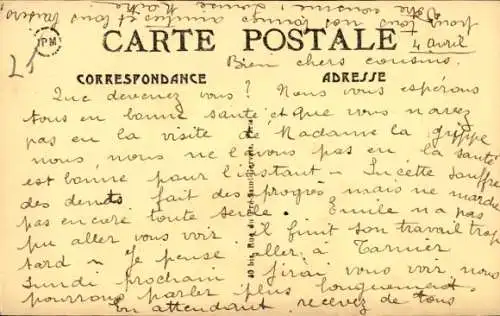 pour tous nos bonnes amitiés et tous
Votre cousine, Louise
CARTE POSTALE
PM
4 avril
Bien chers cousins
CORRESPONDANCE
ADRESSE
Que devenez vous ? Nous vous espérons
tous en bonne santé et que vous n'avez
pas eu la visite de Madame la grippe
nous, nous ne l'avons pas eu la santé
est bonne pour l'instant - Lucette souffre
des dents fait des progrès mais ne marche
pas encore toute seule. Emile n a pas
pu aller vous voir il finit son travail trop
tard - Je pense aller à Tarnier
lundi prochain j'irai vous voir, nous
pourrons parler plus longuement.
En attendant, recevez de tous